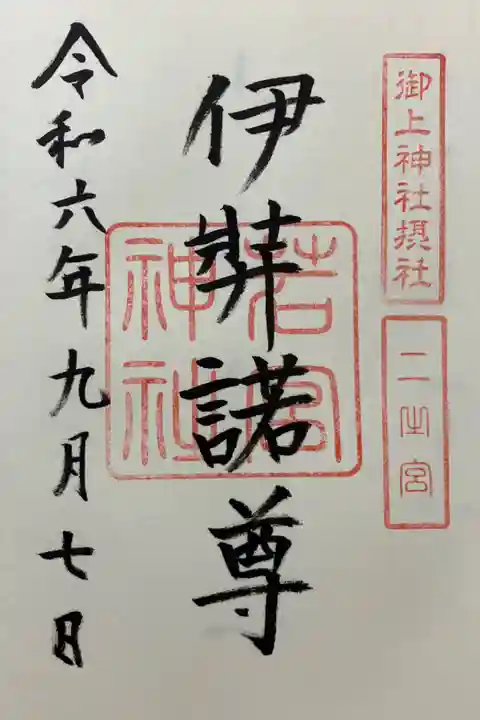 御上神社摂社
二之宮
伊弉諾尊
若宮神社
令和六年九月七日